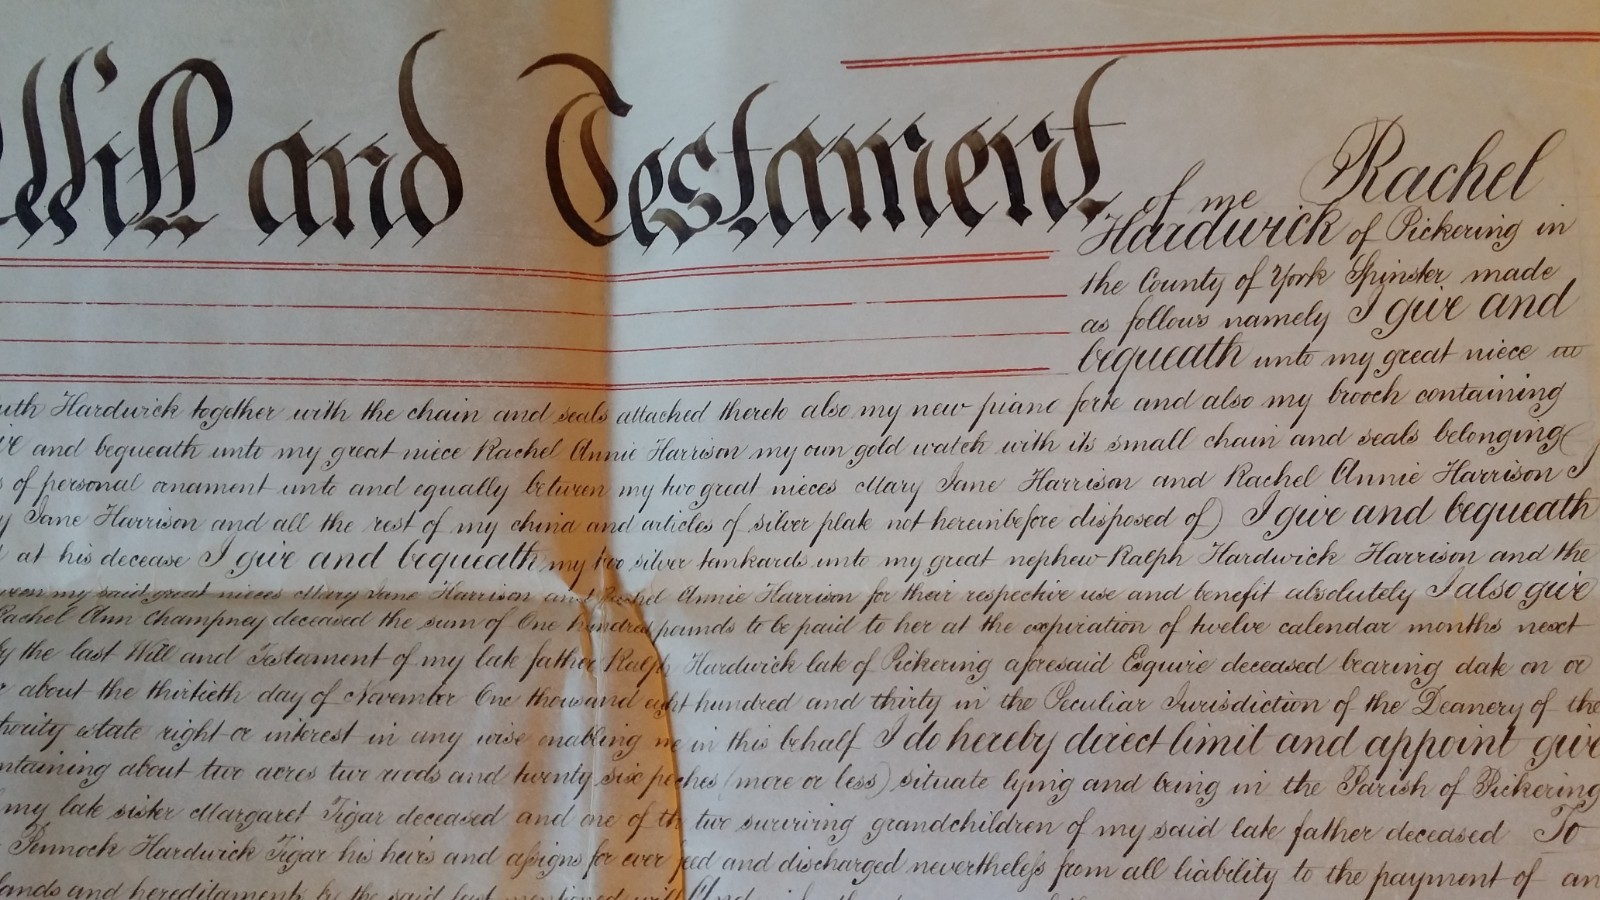 Will and Testament of me Rachel
Hardwick of Pickering in
the County of York Spinster made
as follows namely I give and
bequeath unto my great niece
Hardwick together with the chain and seals attached thereto also my new piano forte and also my brooch containing
and bequeath unto my great niece Rachel Annie Harrison my own gold watch with its small chain and seals belonging
of personal ornament unto and equally between my two great nieces Mary Jane Harrison and Rachel Annie Harrison I
Jane Harrison and all the rest of my china and articles of silver plate not hereinbefore disposed of) I give and bequeath
at his decease I give and bequeath my two silver tankards unto my great nephew Ralph Hardwick Harrison and the
my said great nieces Mary Jane Harrison and Rachel Annie Harrison for their respective use and benefit absolutely I also give
Rachel Ann Champney deceased the sum of One hundred pounds to be paid to her at the expiration of twelve calendar months next
the last Will and Testament of my late father Ralph Hardwick late of Pickering aforesaid Esquire deceased bearing date on or
about the thirtieth day of November One thousand eight hundred and thirty in the Peculiar Jurisdiction of the Deanery of the
estate right or interest in any wise enabling me in this behalf I do hereby direct limit and appoint give
about two acres two roods and twenty six perches (more or less) situate lying and being in the Parish of Pickering
my late sister Margaret Tigar deceased and one of the two surviving grandchildren of my said late father deceased To
Pinnock Hardwick Tigar his heirs and assigns for ever freed and discharged nevertheless from all liability to the payment of an
lands and hereditaments by the said last mentioned will And